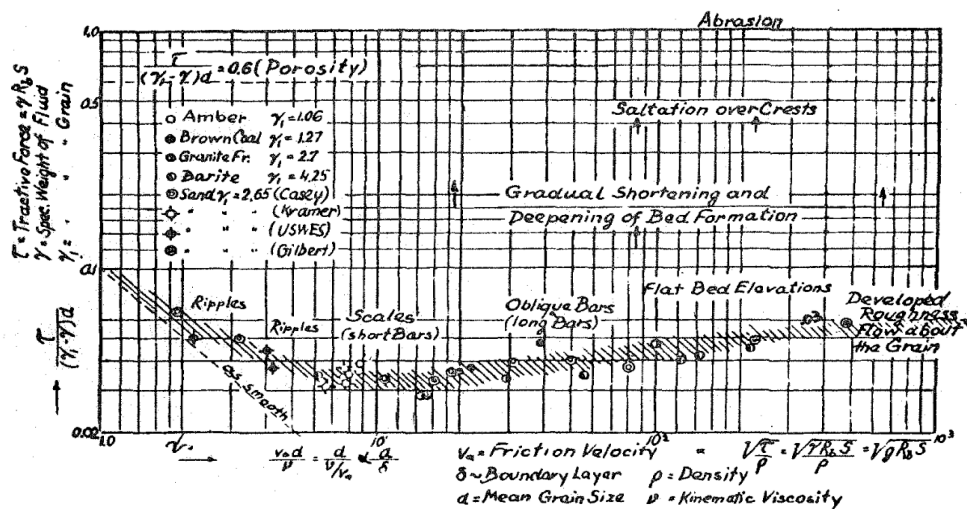 Abrasion
1.0
τ/(γ₁-γ)d = 0.6 (Porosity)
0.5
Saltation over Crests
Amber γ₁=1.06
Brown Coal γ₁=1.27
Granite Fr. γ₁=2.7
Barite γ₁=4.25
Sand γ₁=2.65 (Casey)
" " " (Kramer)
" " " (USWES)
" " " (Gilbert)
τ=Tractive Force=γR_bS
γ=Spec. Weight of Fluid
γ₁= " " " Grain
Gradual Shortening and
Deepening of Bed Formation
0.1
Ripples
Ripples
Scales
(short Bars)
Oblique Bars
(long Bars)
Flat Bed Elevations
Developed
Roughness
Flow about
the Grain
τ/(γ₁-γ)d
as smooth
0.02
1.0
10¹
10²
10³
v_*d/ν = d/(ν/v_*) ∝ d/δ
v_*=Friction Velocity = √τ/ρ = √γR_bS/ρ = √gR_bS
δ~Boundary Layer ρ=Density
d=Mean Grain Size ν=Kinematic Viscosity